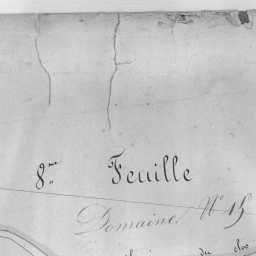 8.me Feuille
Domaine. N° 15
du clos